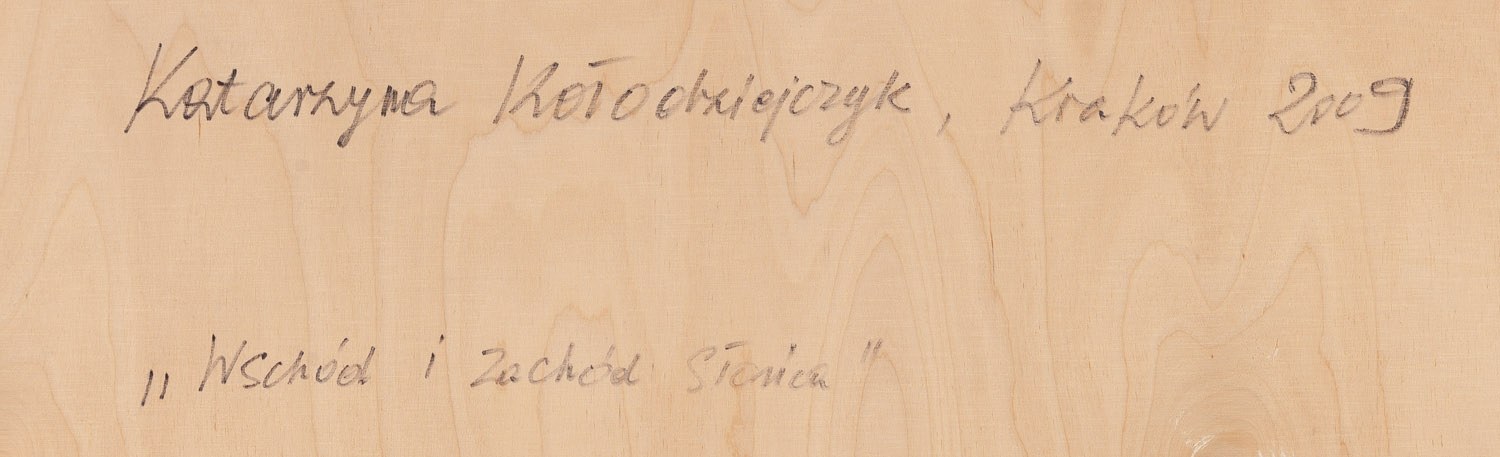 Katarzyna Kołodziejczyk, Kraków 2009
„Wschód i Zachód Słońca"